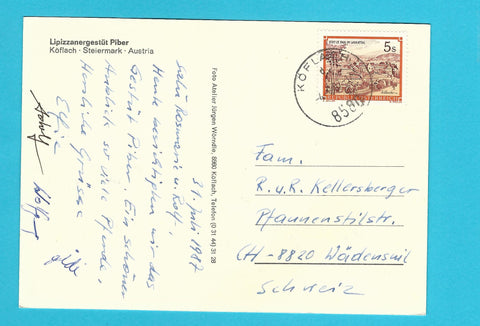 Lipizzanergestüt Piber
Köflach · Steiermark · Austria
31. Juli 1987
Liebe Rosmarie u. Rolf,
Heute besichtigten wir das
Gestüt Piber. Ein schöner
Anblick so viele Pferde.
Herzliche Grüsse
Foto Atelier Jürgen Wörndle, 8580 Köflach, Telefon (0 31 44) 31 28
KÖFLACH
8580
5s
REPUBLIK ÖSTERREICH
Fam.
R. u. R. Kellersberger
Pfannenstilstr.
CH - 8820 Wädenswil
Schweiz